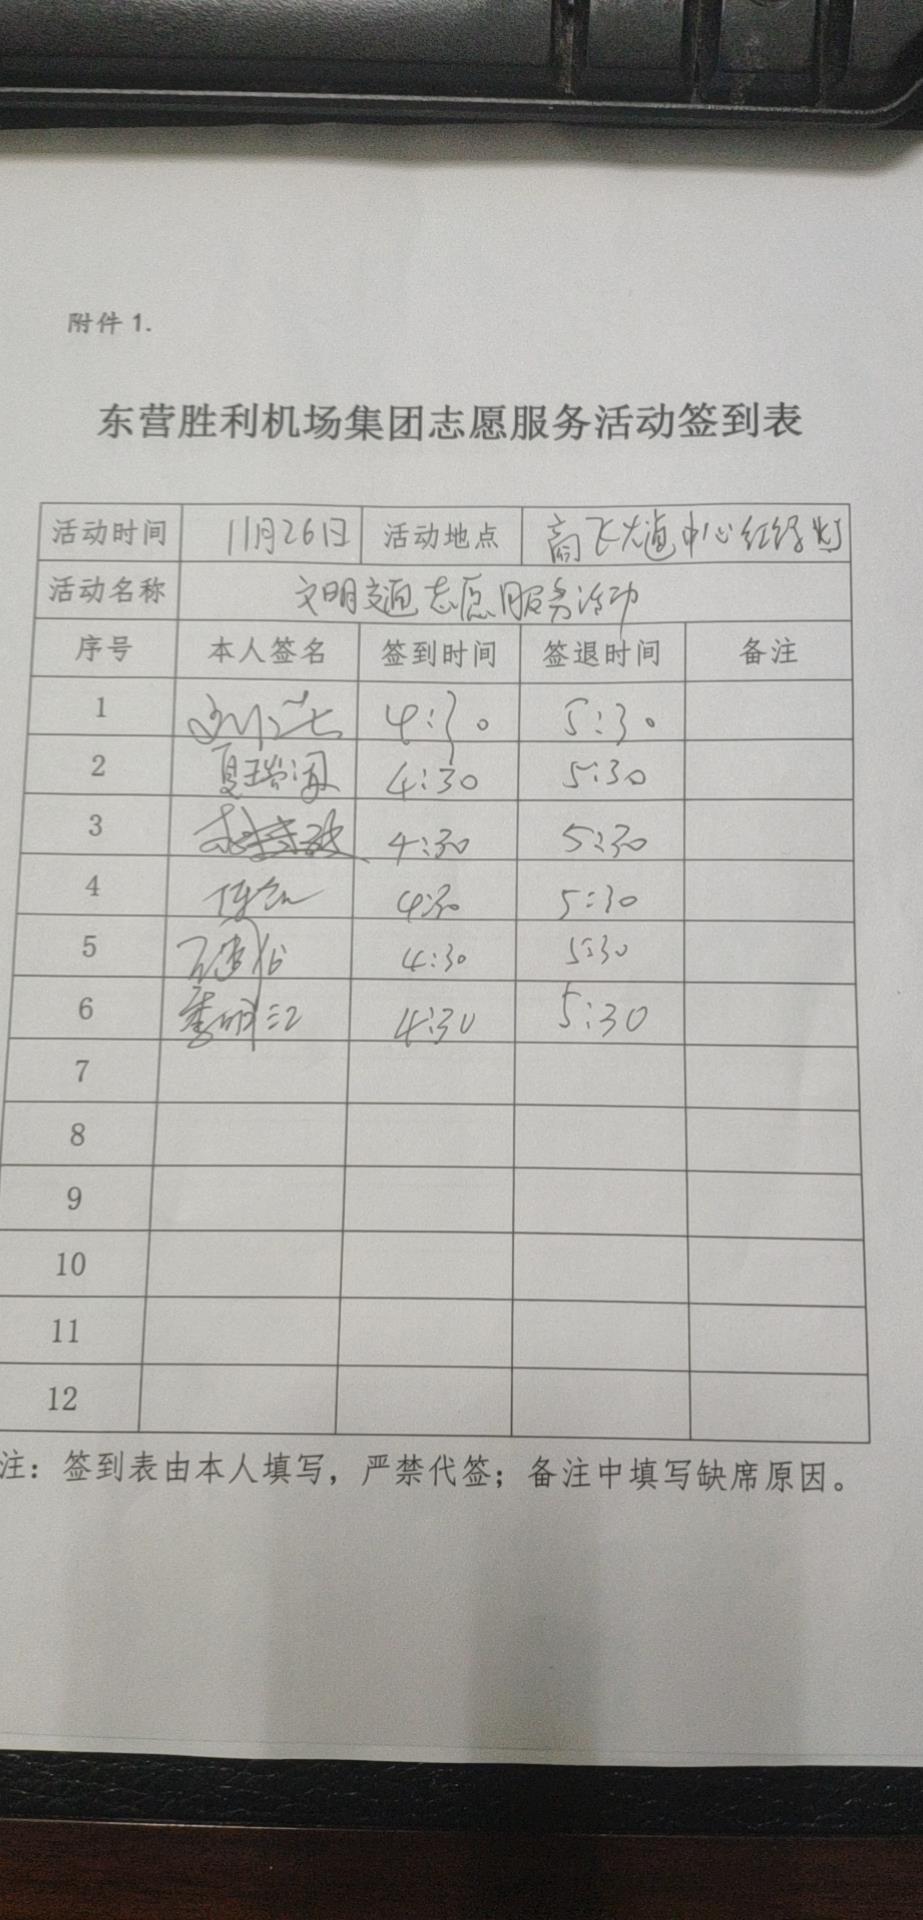 附件1.
东营胜利机场集团志愿服务活动签到表
活动时间 11月26日 活动地点 高飞大道中心红绿灯
活动名称 文明交通志愿服务活动
序号 本人签名 签到时间 签退时间 备注
1 4:30 5:30
2 夏瑞海 4:30 5:30
3 4:30 5:30
4 4:30 5:30
5 4:30 5:30
6 季明江 4:30 5:30
7
8
9
10
11
12
注：签到表由本人填写，严禁代签；备注中填写缺席原因。